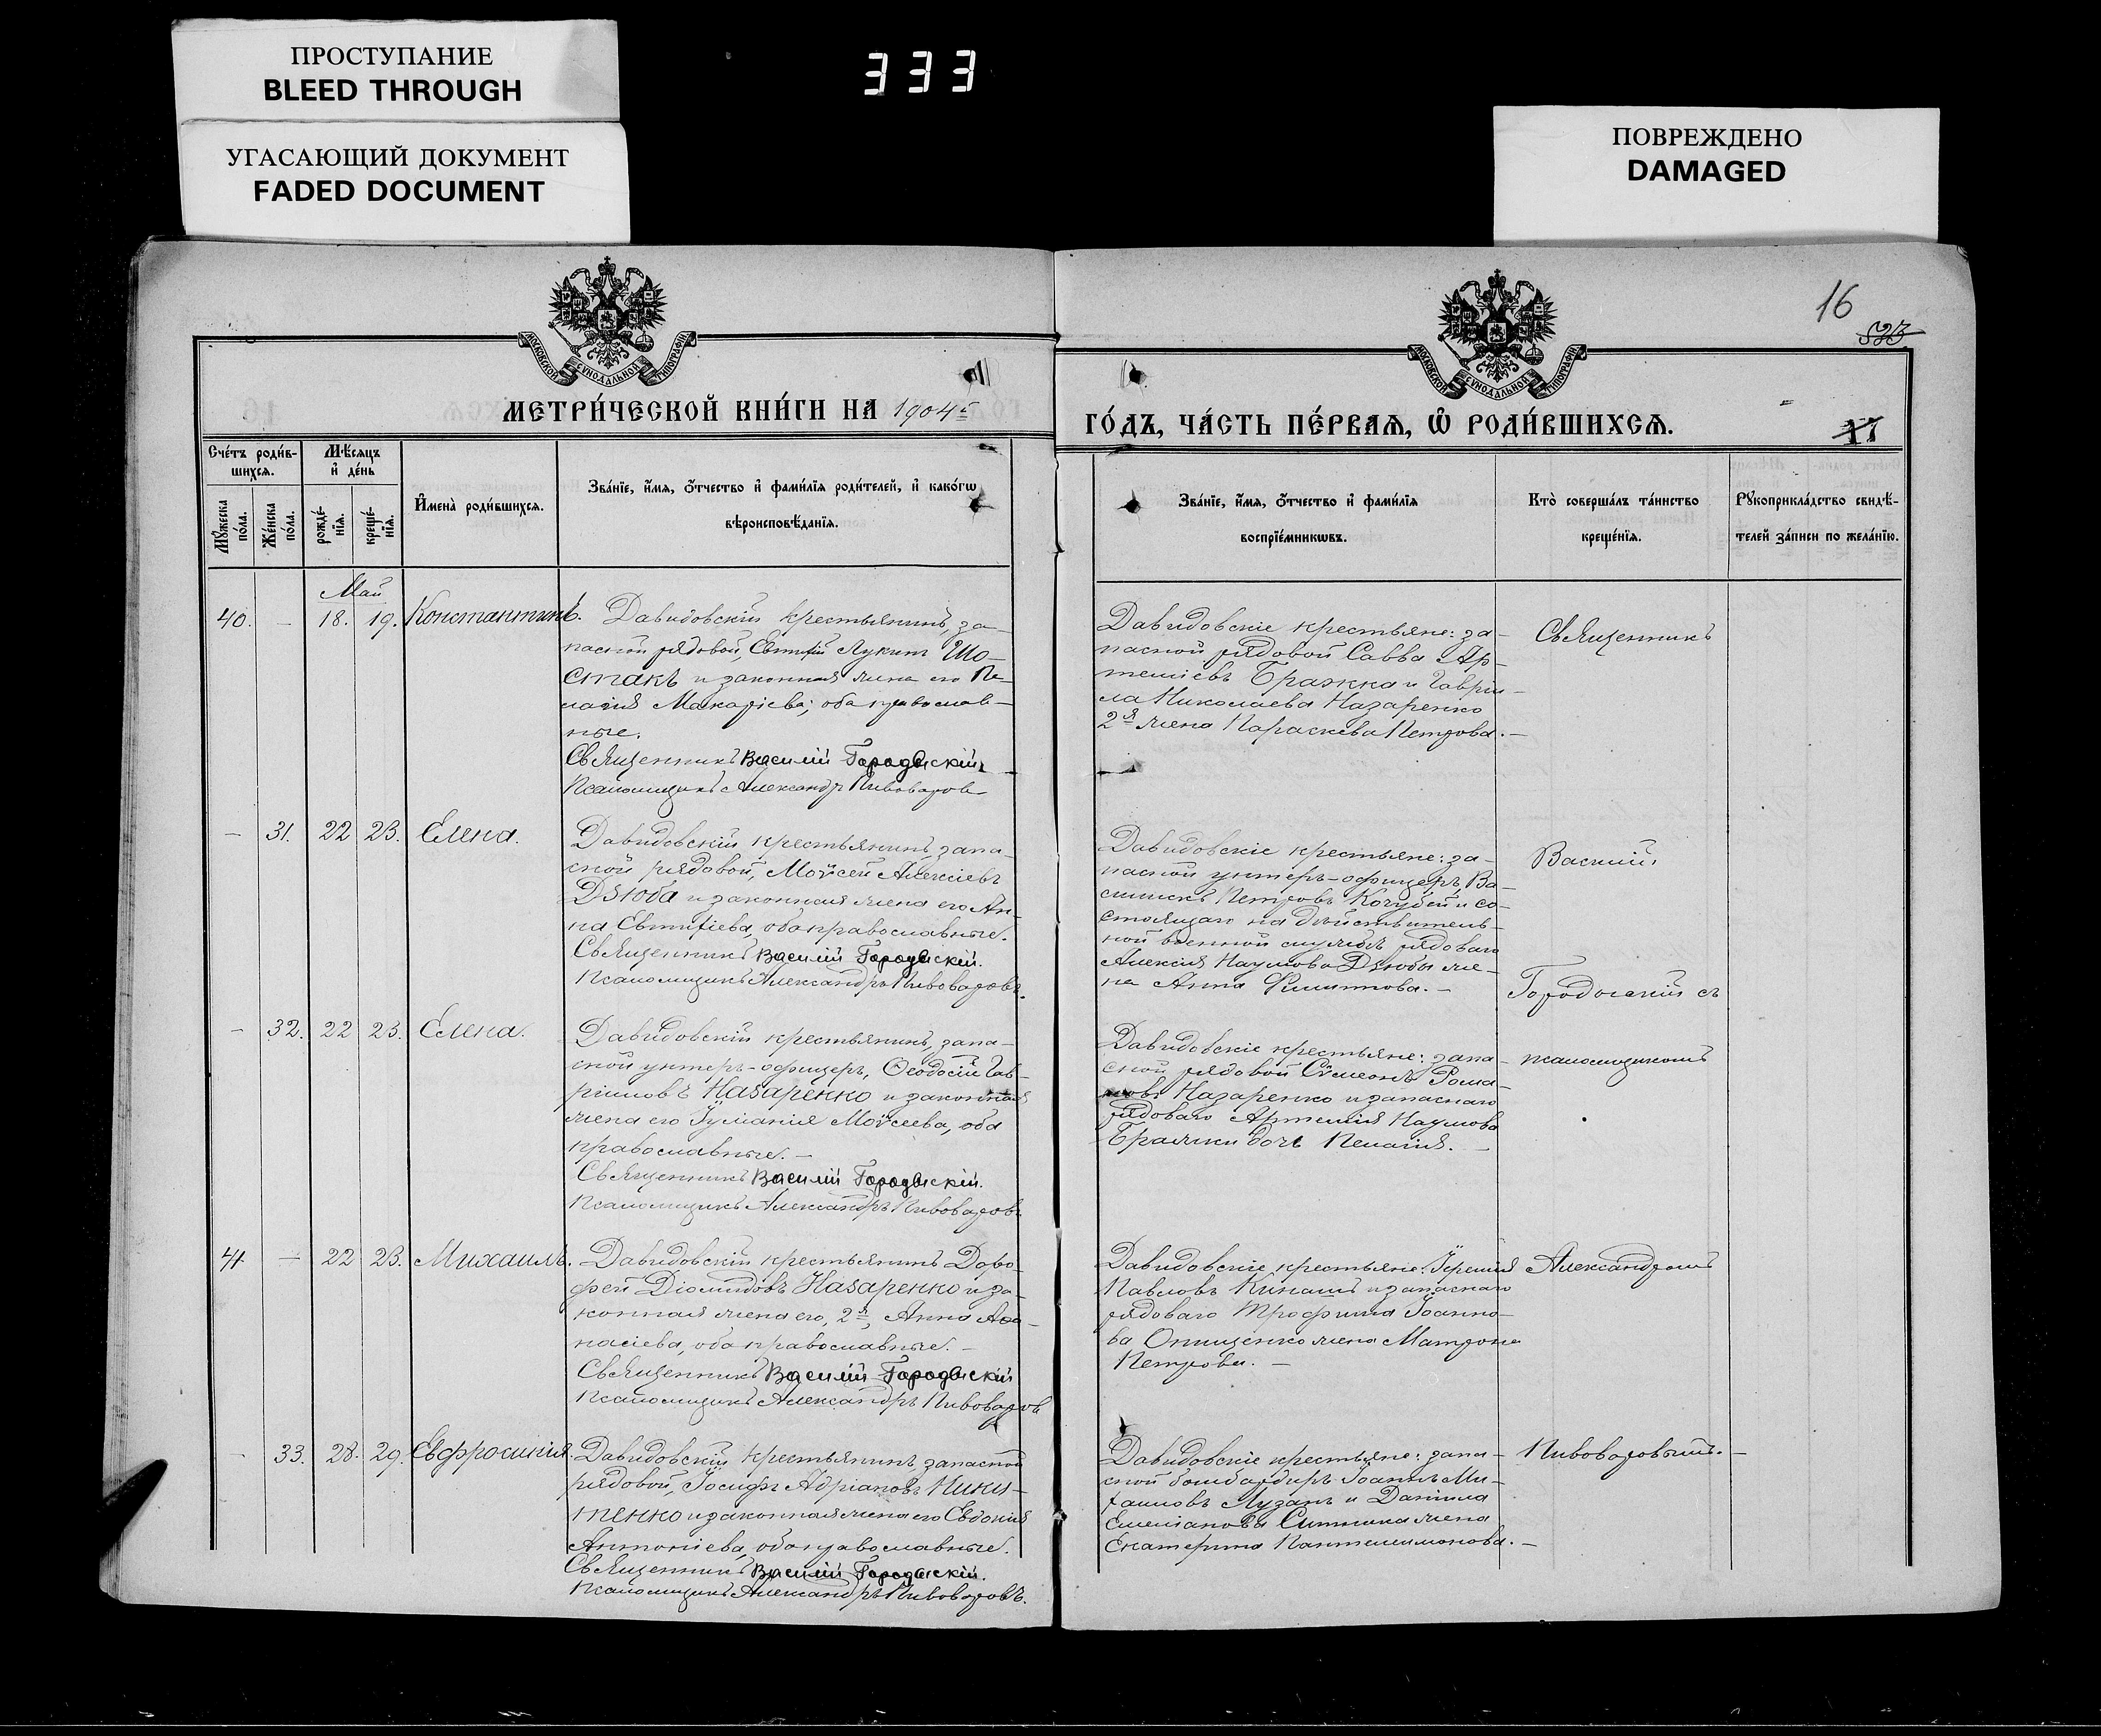 ПРОСТУПАНИЕ
BLEED THROUGH
УГАСАЮЩИЙ ДОКУМЕНТ
FADED DOCUMENT
333
ПОВРЕЖДЕНО
DAMAGED
16
523
МОСКОВСКОЙ СУНОДАЛЬНОЙ ТИПОГРАФІИ
МОСКОВСКОЙ СУНОДАЛЬНОЙ ТИПОГРАФІИ
МЕТРИ́ЧЕСКОЙ КНИ́ГИ НА 1904й
ГО́ДЪ, ЧА́СТЬ ПЕ́РВАѦ, Ѡ҆ РОДИ́ВШИХСѦ.
17
Сче́тъ роди́в-
шихсѧ.
Мꙋ́жеска по́ла.
Же́нска по́ла.
Мѣ́сѧцъ
и҆ де́нь
рожде́-
нїѧ.
креще́-
нїѧ.
И҆мена̀ роди́вшихсѧ.
Зва́нїе, и҆́мѧ, ѻ҆́тчество и҆ фами́лїѧ роди́телей, и҆ како́гѡ
вѣроисповѣ́данїѧ.
Зва́нїе, и҆́мѧ, ѻ҆́тчество и҆ фами́лїѧ
воспрїе́мникѡвъ.
Кто̀ соверша́лъ та́инство
креще́нїѧ.
Рꙋкоприкла́дство свидѣ́-
телей за́писи по жела́нїю.
Май
40. — 18. 19. Константинъ.
Давидовскій крестьянинъ, за-
пасной рядовой, Евтихій Лукинъ Шо-
стакъ и законная жена его Пе-
лагія Макаріева; оба православ-
ные.
Священникъ Василій Городыскій
Псаломщикъ Александръ Пивоваровъ
Давидовскіе крестьяне: за-
пасной рядовой Савва Ар-
теміевъ Бражка и Гаврі-
ла Николаева Назаренко
2я жена Параскева Петрова. —
Священникъ
— 31. 22 23. Елена.
Давидовскій крестьянинъ, запа-
сной рядовой, Моѵсей Алексіевъ
Дзюба и законная жена его Ан-
на Евтихіева, оба православные.
Священникъ Василій Городыскій.
Псаломщикъ Александръ Пивоваровъ.
Давидовскіе крестьяне: за-
пасной унтеръ-офицеръ, Ва-
Петровъ Кочубей и со-
стоящаго на дѣйствитель-
ной военной службѣ рядоваго
Алексія Наумова Дзюбы же-
на Анна Филиппова. —
Василій
Городыскій съ
— 32. 22 23. Елена.
Давидовскій крестьянинъ, запа-
сной унтеръ-офицеръ, Ѳеодосій Гав-
ріиловъ Назаренко и законная
жена его Іуліанія Моѵсеева, оба
православные. —
Священникъ Василій Городыскій.
Псаломщикъ Александръ Пивоваровъ
Давидовскіе крестьяне: запа-
сной рядовой Сѵмеонъ Рома-
новъ Назаренко и запаснаго
рядоваго Артемія Наумова
Бражки дочь Пелагія. —
псаломщикомъ
41 — 22 23. Михаилъ.
Давидовскій крестьянинъ Доро-
фей Діомидовъ Назаренко и за-
конная жена его, 2я, Анна Аѳа-
насіева, оба православные. —
Священникъ Василій Городыскій
Псаломщикъ Александръ Пивоваровъ
Давидовскіе крестьяне: Іеремія
Павловъ Кинашъ и запаснаго
рядоваго Трофима Іоанно-
ва Онищенко жена Матрона
Петрова. —
Александромъ
— 33. 28. 29. Евфросинія.
Давидовскій крестьянинъ запасной
рядовой, Іосифъ Адріановъ Ники-
тенко и законная жена его Евдокія
Антоніева, оба православные.
Священникъ Василій Городыскій.
Псаломщикъ Александръ Пивоваровъ.
Давидовскіе крестьяне: запа-
сной бомбардиръ Іоаннъ Ми-
хаиловъ Лузанъ и Даніила
Емеліанова Ситника жена
Екатерина Пантелеимонова. —
Пивоваровымъ. —